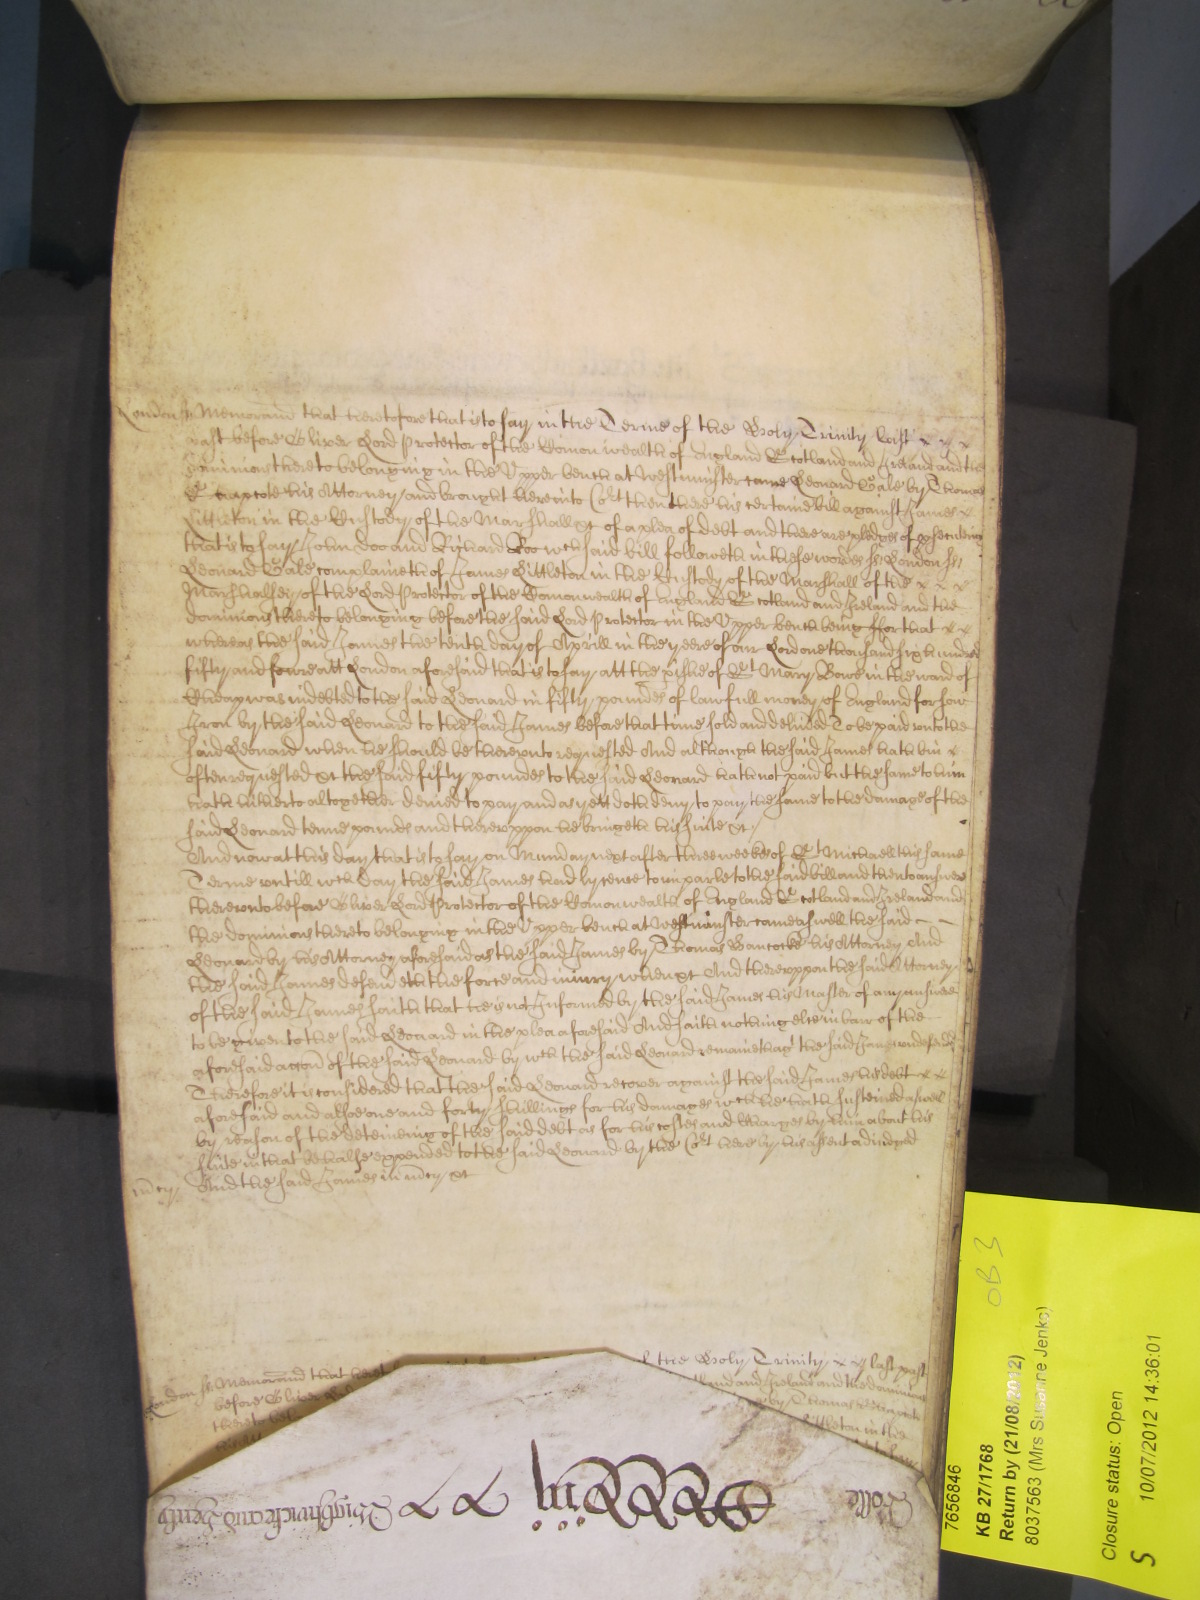 London ss Memorand that heretofore that is to say in the Terme of the Holy Trinity last x x x
past before Oliver Lord Protector of the Comonwealth of England Scotland and Ireland and the
Dominions thereto belonging in the Upper bench at Westminster came Leonard Gale by Thomas
his Attorney and brought here into Cort then there his certaine bill against James x
Littleton in the Custody of the Marshall &c of a plea of debt and there are pledges of prosecuting
that is to say John Doo and Richard Roo wch said bill followeth in these wordes ss London ss
Leonard Gale complaineth of James Littleton in the Custody of the Marshall of the x x x
Marshallsey of the Lord Protector of the Comonwealth of England Scotland and Ireland and the
dominions thereto belonging before the said Lord Protector in the Upper bench being ffor that x x
whereas the said James the tenth day of Aprill in the yeere of our Lord one thousand six hundred
fifty and foure att London aforesaid that is to say att the pishe of St Mary Bowe in the ward of
Cheap was indebted to the said Leonard in fifty poundes of lawfull money of England for
Iron by the said Leonard to the said James before that time sold and delived To be paid unto the
said Leonard when he should be thereunto requested And although the said James hath bin x
often requested &c the said fifty poundes to the said Leonard hath not paid but the same to him
hath hitherto altogether denied to pay and as yett doth deny to pay the same to the damage of the
said Leonard tenne pounds and thereuppon he bringeth his suite &c /
And now at this day that is to say on Munday next after three weekes of St Michaell this same
Terme untill wch day the said James had lycence to imparle to the said bill and then to answere
thereunto before Oliver Lord Protector of the Comonwealth of England Scotland and Ireland and
the dominions thereto belonging in the Upper bench at Westminster came aswell the said
Leonard by his Attorney aforesaid as the said James by Thomas his Attorney And
the said James defendeth the force and iniury when &c And thereuppon the said Attorney
of the said James saith that he is not Informed by the said James his Master of any answere
to be given to the said Leonard in the plea aforesaid And saith nothing else in barr of the
aforesaid accon of the said Leonard by wch the said Leonard remaineth agt the said James undefended
Therefore it is considered that the said Leonard recover against the said James his debt x x
aforesaid and alsoe one and forty shillings for his damages wch he hath susteined aswell
by reason of the deteineing of the said debt as for his costes and Charges by him about his
suite in that behalfe expended to the said Leonard by the Cort here by his assent adiudged
mcy And the said James in mcy &c
London ss Memorand that
before Oliver
the Holy Trinity x x last past
and Ireland and the dominions
by Thomas
Littleton in the
Rolle
7656846
KB 27/1768
Return by (21/08/2012)
8037563 (Mrs Susanne Jenks)
OB 3
Closure status: Open
10/07/2012 14:36:01
S